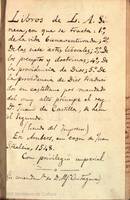 Libros de L. A. Se-
neca, en que se trata: 1º
de la vida bienaventurada; 2º
de las siete artes liberales; 3º de
los preceptos y doctrinas; 4º de
la providencia de Dios; 5º de
la providencia de Dios traduci-
dos en castellano por mandado
del muy alto principe el rey
D. Juan de Castilla, de
el segundo.
En Anvers, en casa de Juan
1548.
Con privilegio imperial